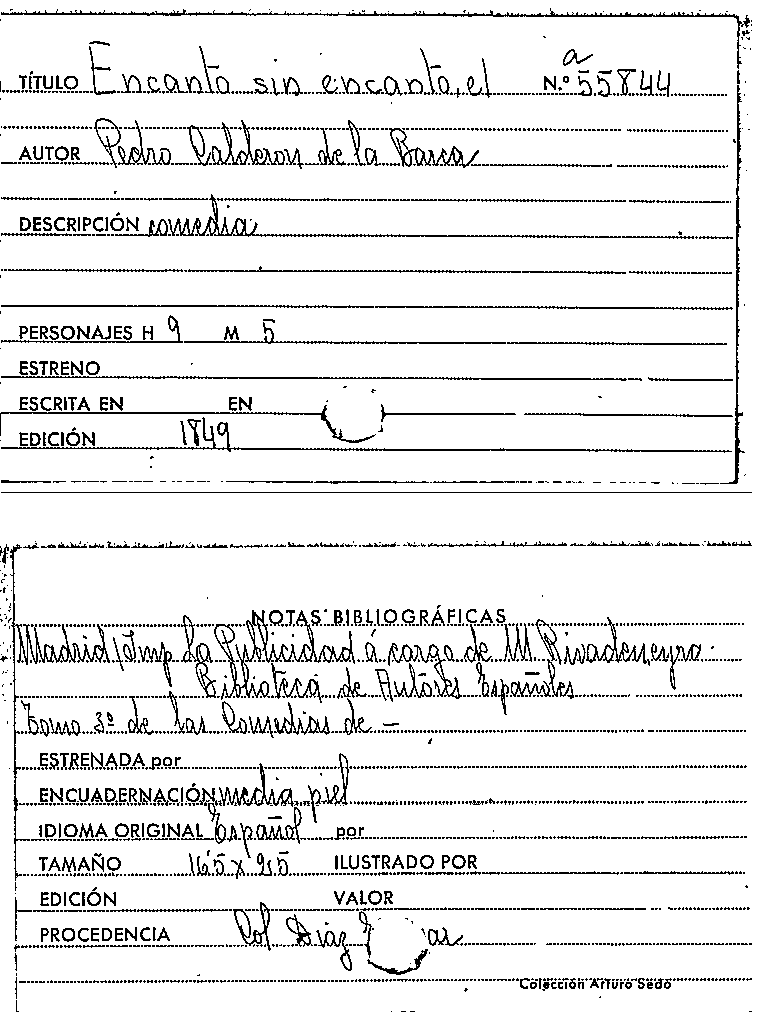 TÍTULO Encanto sin encanto, el N.º 55844
a
AUTOR Pedro Calderon de la Barca
DESCRIPCIÓN comedia
PERSONAJES H 9 M 5
ESTRENO
ESCRITA EN EN
EDICIÓN 1849
NOTAS BIBLIOGRÁFICAS
Madrid/Imp La Publicidad á cargo de M. Rivadeneyra.
Biblioteca de Autores Españoles
Tomo 3º de las Comedias de —
ESTRENADA por
ENCUADERNACIÓN media piel
IDIOMA ORIGINAL Español por
TAMAÑO ILUSTRADO POR
EDICIÓN VALOR
PROCEDENCIA Col Diaz
Colección Arturo Sedó